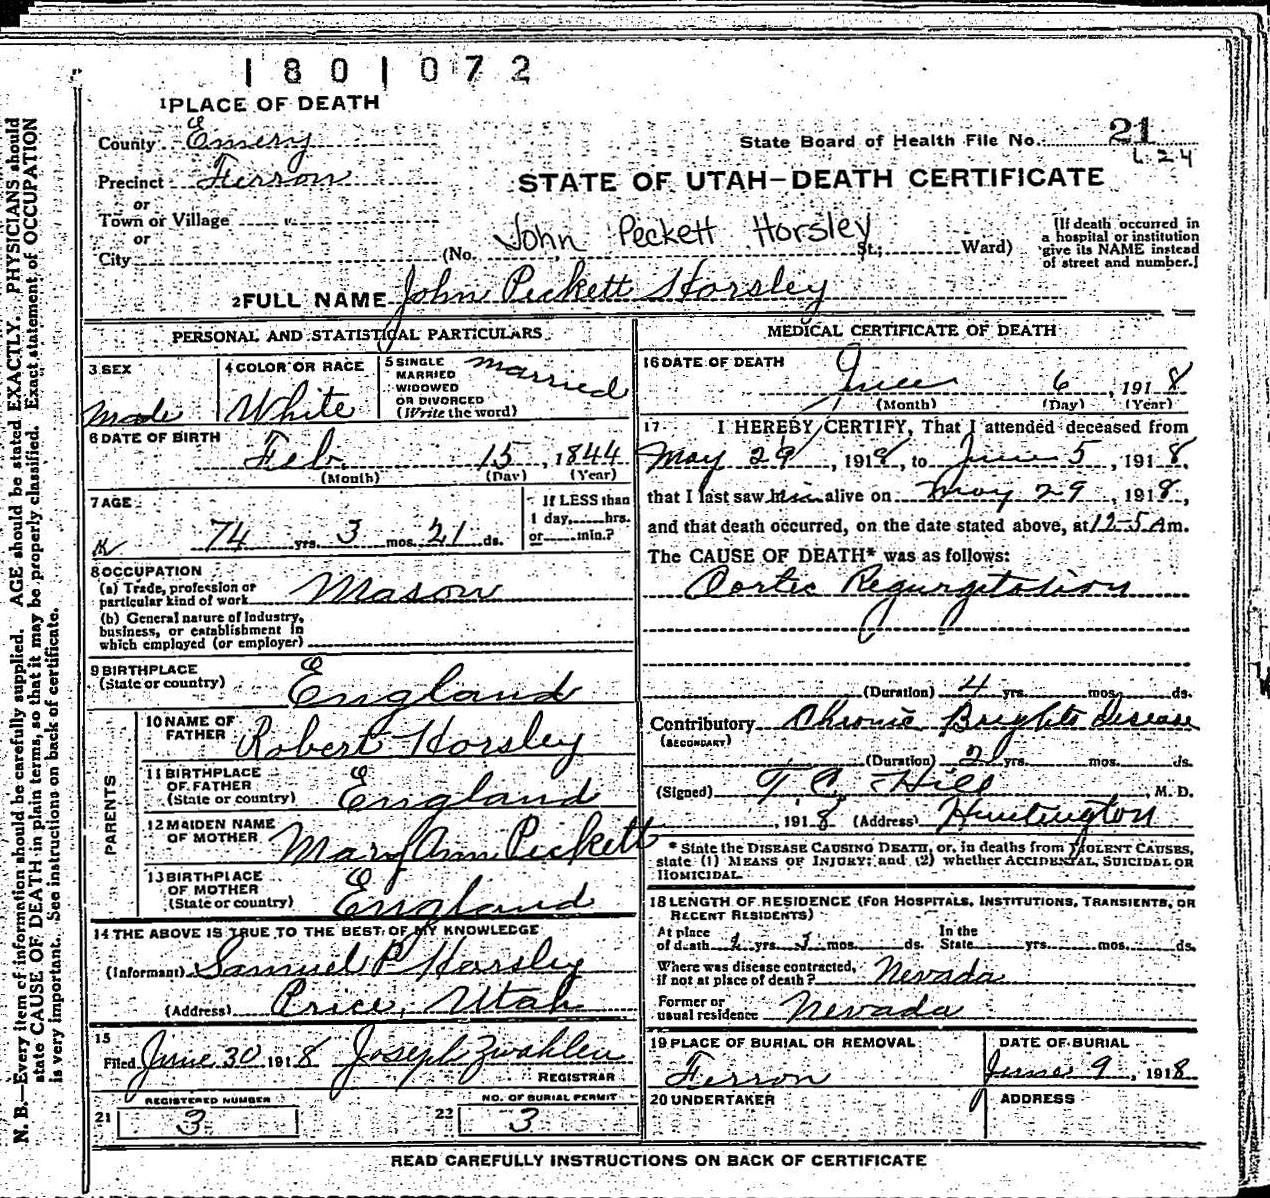 1801072
1 PLACE OF DEATH
County Emery
State Board of Health File No. 21
L. 24
Precinct Ferron
STATE OF UTAH—DEATH CERTIFICATE
or
Town or Village "
or
City (No. John Peckett Horsley St.; Ward)
[If death occurred in
a hospital or institution
give its NAME instead
of street and number.]
2 FULL NAME John Peckett Horsley
PERSONAL AND STATISTICAL PARTICULARS
3 SEX
Male
4 COLOR OR RACE
White
5 SINGLE
MARRIED
WIDOWED
OR DIVORCED
(Write the word)
married
6 DATE OF BIRTH
Feb. 15, 1844
(Month) (Day) (Year)
7 AGE
74 yrs. 3 mos. 21 ds.
If LESS than
1 day, hrs.
or min.?
8 OCCUPATION
(a) Trade, profession or
particular kind of work Mason
(b) General nature of Industry,
business, or establishment in
which employed (or employer)
9 BIRTHPLACE
(State or country) England
PARENTS
10 NAME OF
FATHER Robert Horsley
11 BIRTHPLACE
OF FATHER
(State or country) England
12 MAIDEN NAME
OF MOTHER Mary Ann Pickett
13 BIRTHPLACE
OF MOTHER
(State or country) England
14 THE ABOVE IS TRUE TO THE BEST OF MY KNOWLEDGE
(Informant) Samuel P Horsley
(Address) Price, Utah
15
Filed June 30 1918 Joseph Zwahlen
REGISTRAR
21 REGISTERED NUMBER
3
22 NO. OF BURIAL PERMIT
3
MEDICAL CERTIFICATE OF DEATH
16 DATE OF DEATH
June 6, 1918
(Month) (Day) (Year)
17 I HEREBY CERTIFY, That I attended deceased from
May 29, 1918, to June 5, 1918,
that I last saw him alive on May 29, 1918,
and that death occurred, on the date stated above, at 12-5 A m.
The CAUSE OF DEATH* was as follows:
Aortic Regurgitation
(Duration) 4 yrs. mos. ds.
Contributory Chronic Brights disease
(SECONDARY)
(Duration) 2 yrs. mos. ds.
(Signed) T. C. Hill, M. D.
, 1918 (Address) Huntington
* State the DISEASE CAUSING DEATH, or, in deaths from VIOLENT CAUSES,
state (1) MEANS OF INJURY; and (2) whether ACCIDENTAL, SUICIDAL OR
HOMICIDAL.
18 LENGTH OF RESIDENCE (FOR HOSPITALS, INSTITUTIONS, TRANSIENTS, OR
RECENT RESIDENTS)
At place
of death yrs. mos. ds.
In the
State yrs. mos. ds.
Where was disease contracted,
if not at place of death? Nevada
Former or
usual residence Nevada
19 PLACE OF BURIAL OR REMOVAL
Ferron
DATE OF BURIAL
June 9, 1918
20 UNDERTAKER
ADDRESS
READ CAREFULLY INSTRUCTIONS ON BACK OF CERTIFICATE
N. B.—Every item of information should be carefully supplied. AGE should be stated EXACTLY. PHYSICIANS should
state CAUSE OF DEATH in plain terms, so that it may be properly classified. Exact statement of OCCUPATION
is very important. See instructions on back of certificate.